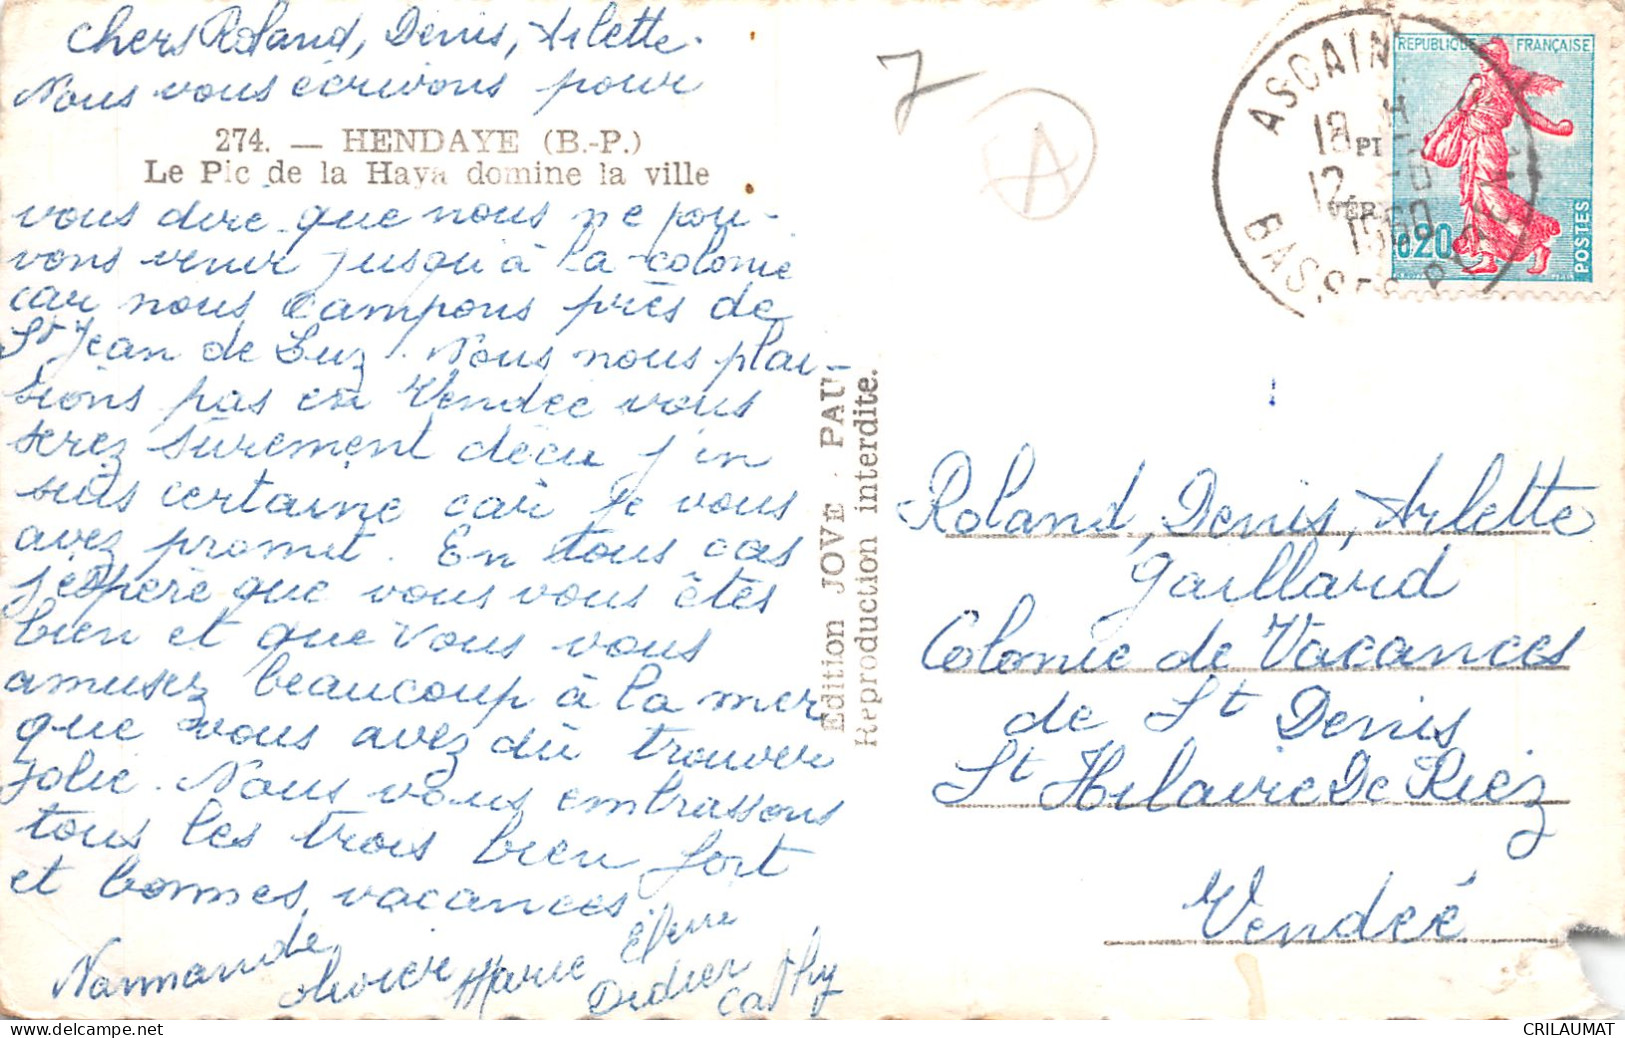 Chers Roland, Denis, Arlette.
Nous vous écrivons pour
274. — HENDAYE (B.-P.)
Le Pic de la Haya domine la ville
vous dire que nous ne pou-
vons venir jusqu'à la colonie
car nous campons près de
St Jean de Luz. Nous nous plai-
sions pas en Vendée vous
serez sûrement déçu j'en
suis certaine car je vous
avez promit. En tous cas
j'éspère que vous vous êtes
bien et que vous vous
amusez beaucoup à la mer
que vous avez dû trouver
jolie. Nous vous embrassons
tous les trois bien fort
et bonnes vacances
Normande
Olivier Marie
Didier
Cathy
Edition JOVE - PAU
Reproduction interdite.
J
A
ASCAIN
18 H
12
1960
BASSES
REPUBLIQUE FRANÇAISE
0,20
POSTES
Roland, Denis, Arlette
Gaillard
Colonie de Vacances
de St Denis
St Hilaire De Riez
Vendée
CRILAUMAT